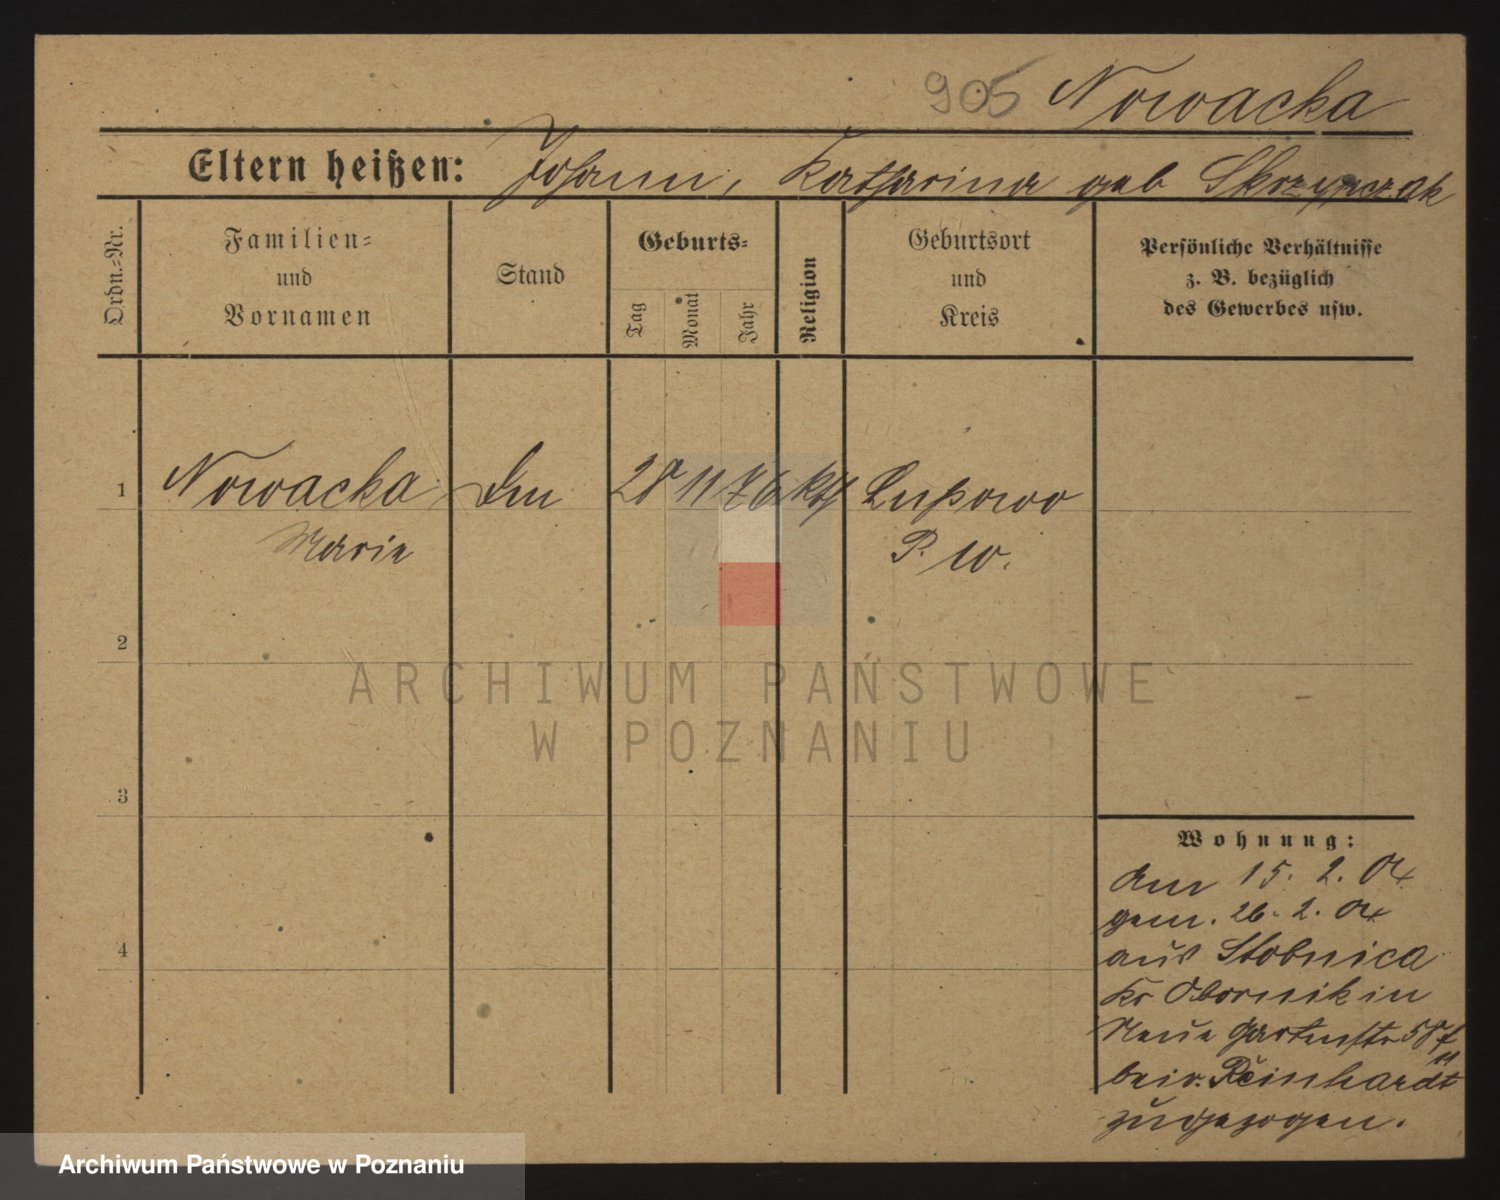 905 Nowacka
Eltern heißen: Johann, Katharina geb Skrzypczak
Ordn.-Nr.
Familien-
und
Vornamen
Stand
Geburts-
Tag
Monat
Jahr
Religion
Geburtsort
und
Kreis
Persönliche Verhältnisse
z. B. bezüglich
des Gewerbes usw.
1 Nowacka 28 11 76 kth Lussowo
Marie P. W.
2
ARCHIWUM PAŃSTWOWE
W POZNANIU
3
Wohnung:
am 15. 2. 04
gem. 26. 2. 04
4
aus Stobnica
Kr Obornik in
Neue Gartenstr 58
bei v. Reinhardt
zugezogen.
Archiwum Państwowe w Poznaniu